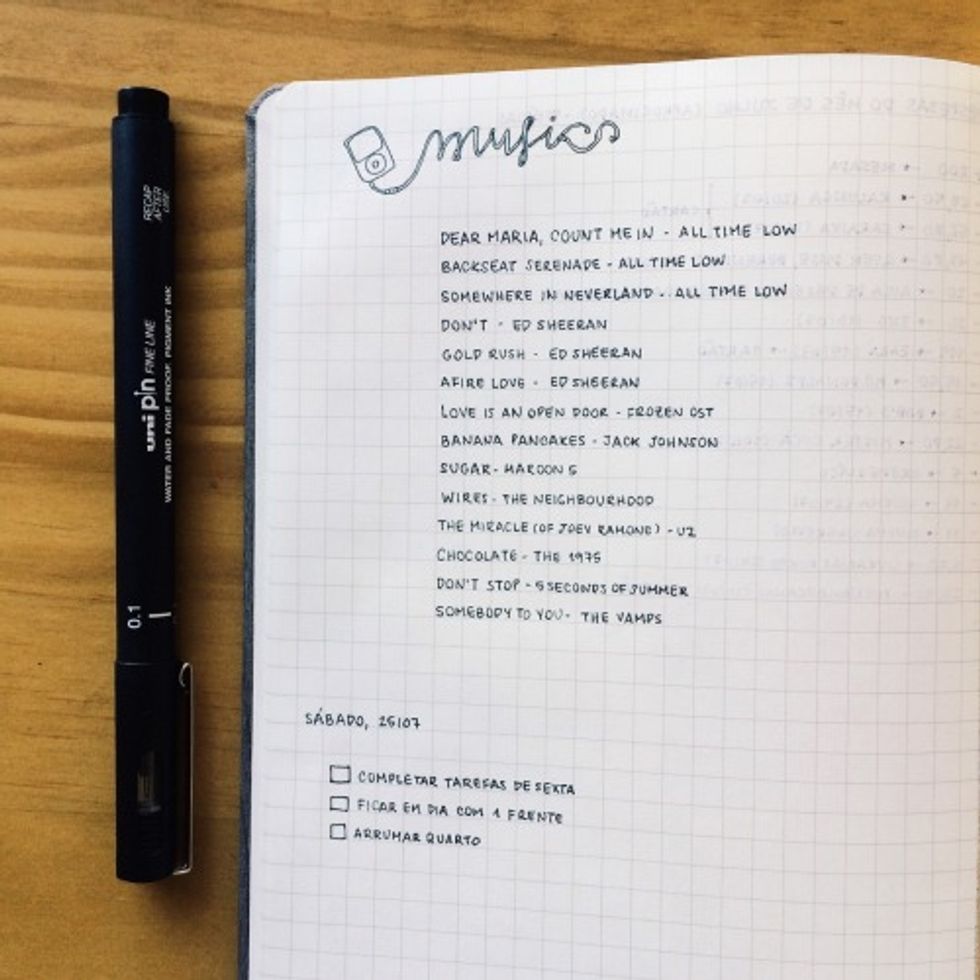 RECAP
AFTER
USE
uni pin FINE LINE
WATER AND FADE PROOF, PIGMENT INK
0.1
musics
DEAR MARIA, COUNT ME IN - ALL TIME LOW
BACKSEAT SERENADE - ALL TIME LOW
SOMEWHERE IN NEVERLAND - ALL TIME LOW
DON'T - ED SHEERAN
GOLD RUSH - ED SHEERAN
AFIRE LOVE - ED SHEERAN
LOVE IS AN OPEN DOOR - FROZEN OST
BANANA PANCAKES - JACK JOHNSON
SUGAR - MAROON 5
WIRES - THE NEIGHBOURHOOD
THE MIRACLE (OF JOEY RAMONE) - U2
CHOCOLATE - THE 1975
DON'T STOP - 5 SECONDS OF SUMMER
SOMEBODY TO YOU - THE VAMPS
SÁBADO, 25/07
COMPLETAR TAREFAS DE SEXTA
FICAR EM DIA COM 1 FRENTE
ARRUMAR QUARTO